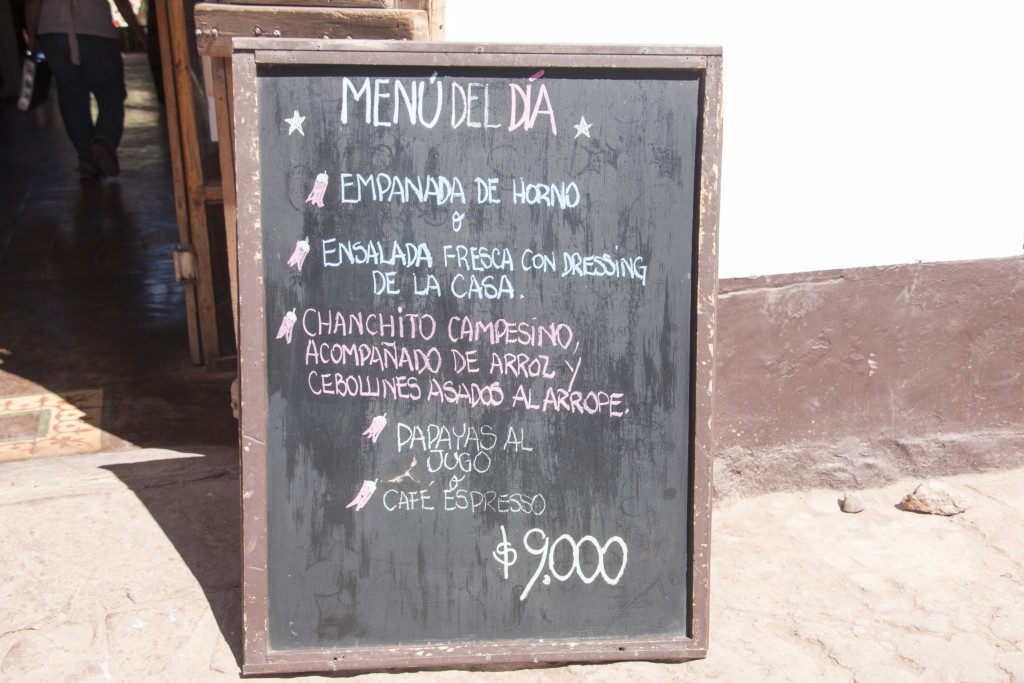 MENÚ DEL DÍA
EMPANADA DE HORNO
o
ENSALADA FRESCA CON DRESSING
DE LA CASA.
CHANCHITO CAMPESINO,
ACOMPAÑADO DE ARROZ Y
CEBOLLINES ASADOS AL ARROPE.
PAPAYAS AL
JUGO
o
CAFÉ ESPRESSO
$9.000